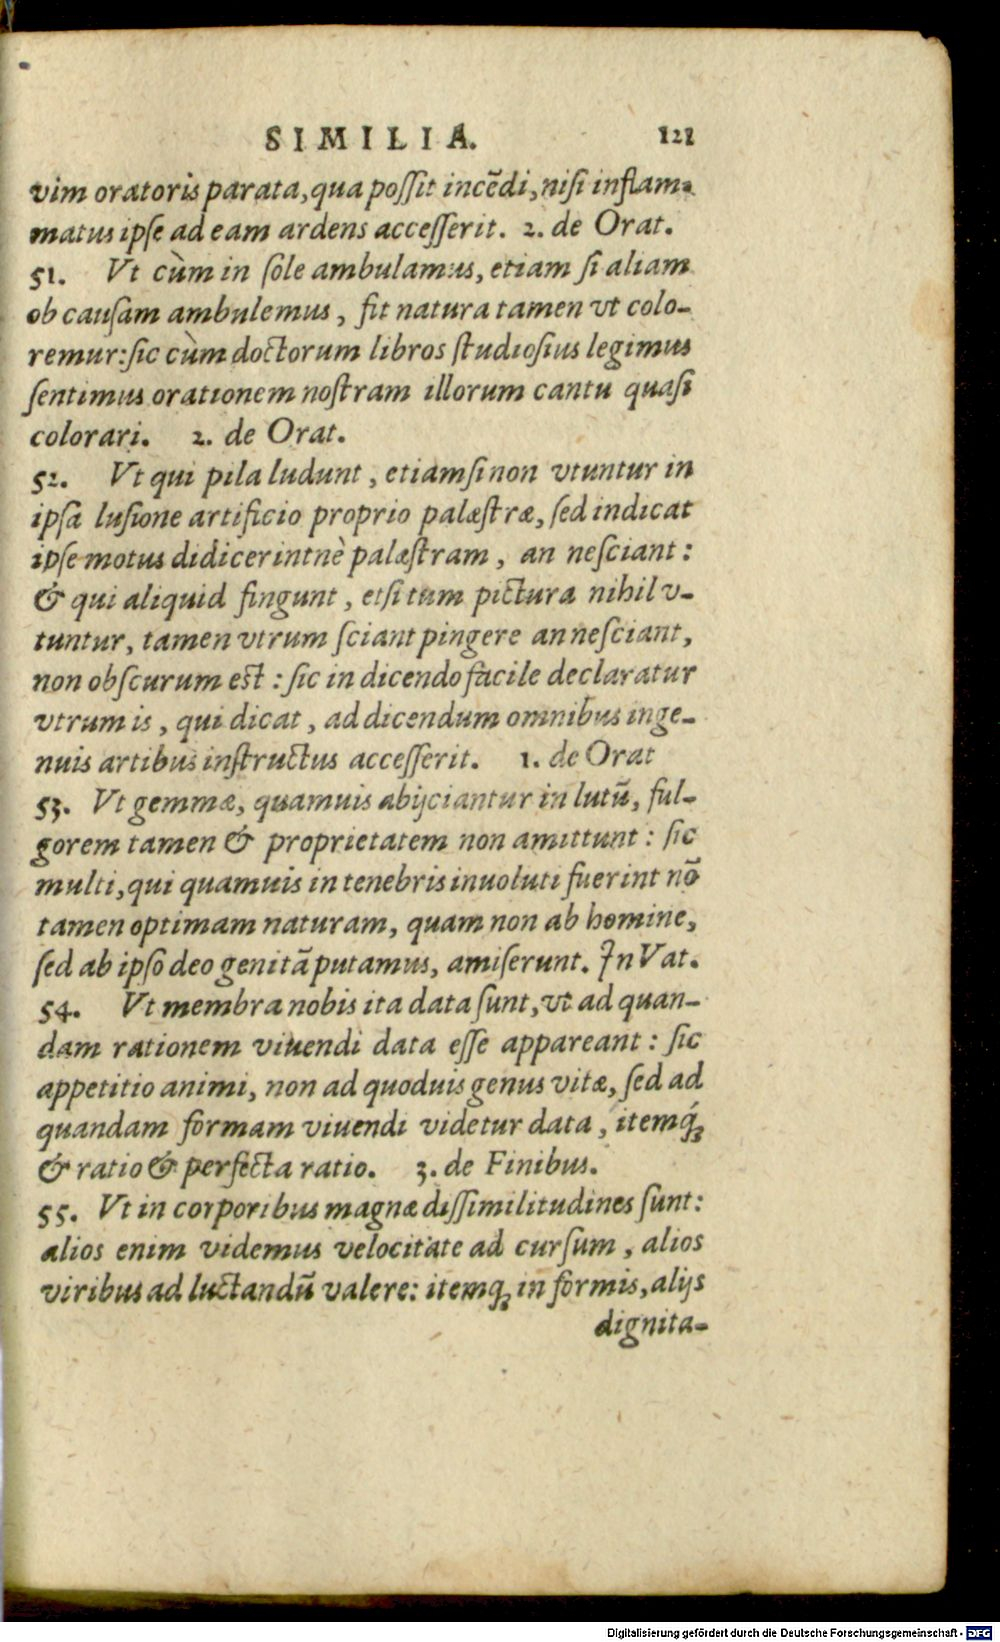 SIMILIA. 121
vim oratoris parata, qua poſſit incẽdi, niſi inflam-
matus ipſe ad eam ardens acceſſerit. 2. de Orat.
51. Vt cùm in ſole ambulamus, etiam ſi aliam
ob cauſam ambulemus, fit natura tamen vt colo-
remur: ſic cùm doctorum libros ſtudioſius legimus
ſentimus orationem noſtram illorum cantu quaſi
colorari. 2. de Orat.
52. Vt qui pila ludunt, etiamſi non vtuntur in
ipſa luſione artificio proprio palæſtræ, ſed indicat
ipſe motus didicerintnè palæſtram, an neſciant:
& qui aliquid fingunt, etſi tum pictura nihil v-
tuntur, tamen vtrum ſciant pingere an neſciant,
non obſcurum eſt: ſic in dicendo facile declaratur
vtrum is, qui dicat, ad dicendum omnibus inge-
nuis artibus inſtructus acceſſerit. 1. de Orat
53. Vt gemmæ, quamuis abijciantur in lutũ, ful-
gorem tamen & proprietatem non amittunt: ſic
multi, qui quamuis in tenebris inuoluti fuerint nõ
tamen optimam naturam, quam non ab homine,
ſed ab ipſo deo genitã putamus, amiſerunt. In Vat.
54. Vt membra nobis ita data ſunt, vt ad quan-
dam rationem viuendi data eſſe appareant: ſic
appetitio animi, non ad quoduis genus vitæ, ſed ad
quandam formam viuendi videtur data, itemq́;
& ratio & perfecta ratio. 3. de Finibus.
55. Vt in corporibus magnæ diſſimilitudines ſunt:
alios enim videmus velocitate ad curſum, alios
viribus ad luctandũ valere: itemq; in formis, alijs
dignita-
Digitalisierung gefördert durch die Deutsche Forschungsgemeinschaft - DFG